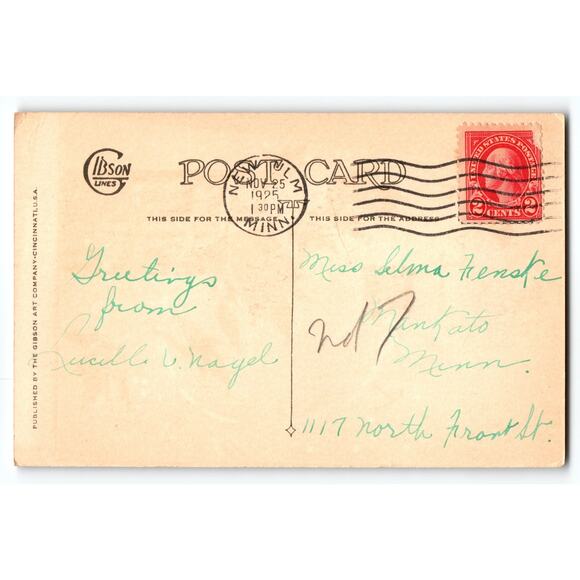 GIBSON
LINES
POST CARD
NEW ULM
NOV 25
1925
1 30 PM
MINN.
UNITED STATES POSTAGE
2 CENTS 2
THIS SIDE FOR THE MESSAGE
THIS SIDE FOR THE ADDRESS
PUBLISHED BY THE GIBSON ART COMPANY-CINCINNATI,U.S.A.
Greetings
from
Lucille V. Nagel
Miss Selma Fenske
Mankato
Minn.
1117 North Front St.